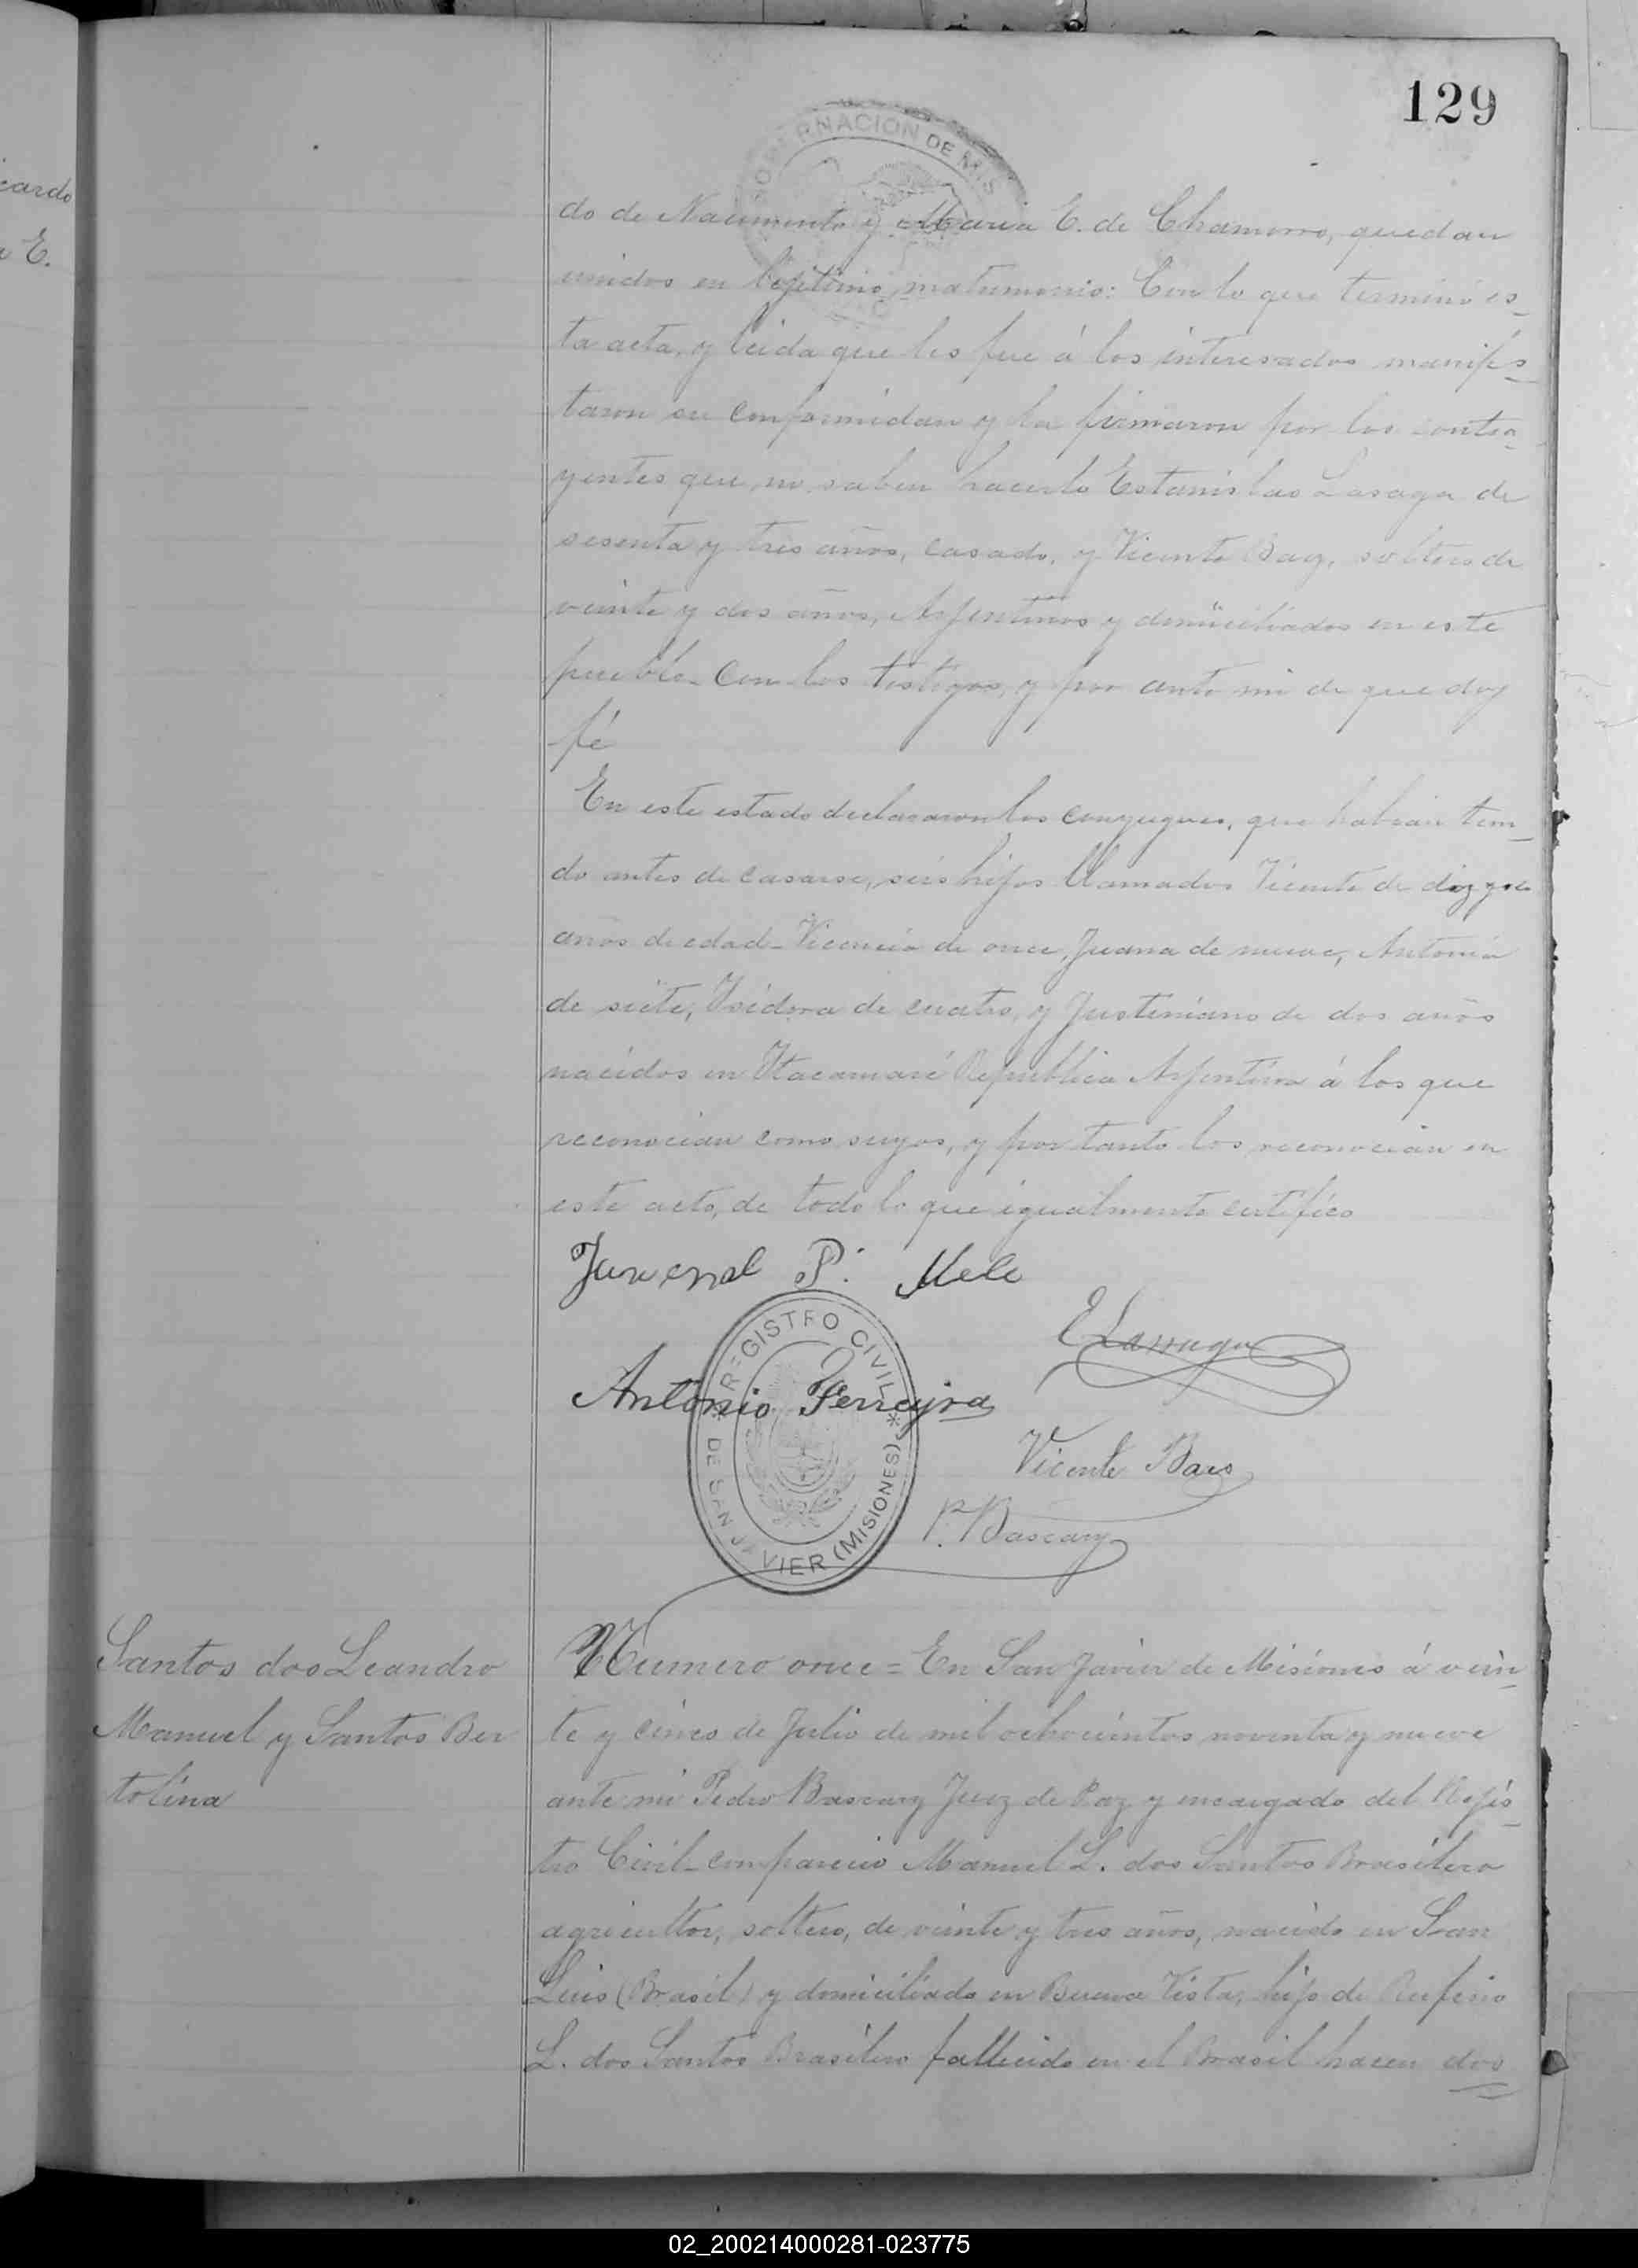 129
GOBERNACION DE MIS
cardo
E.
do de Nacimento y Maria E. de Chamorro, quedan
unidos en lejitimo matrimonio: Con lo que terminó es_
ta acta, y leida que les fue á los interesados manifes_
taron su conformidad y la firmaron por los contra_
yentes que no saben hacerlo Estanislao Lasaga de
sesenta y tres años, casado, y Vicente Baez, soltero de
veinte y dos años, Arjentinos y domiciliados en este
pueblo_ Con los testigos, y por ante mi de que doy
fé
En este estado declararon los conyugues, que habian teni_
do antes de casarse, seis hijos llamados Vicente de diez y seis
años de edad_ Vicencia de once, Juana de nueve, Antonia
de siete, Isidora de cuatro, y Justiniano de dos años
nacidos en Itacaruaré Republica Arjentina á los que
reconocian como suyos, y por tanto los reconocian en
este acto, de todo lo que igualmente certifico
Juvenal P. Mele
E Larraga
Antonio Ferreyra
REGISTRO CIVIL * DE SAN JAVIER (MISIONES) *
Vicente Baes
P. Bascary
Santos dos Leandro
Manuel y Santos Ber
tolina
Numero once = En San Javier de Misiones á vein_
te y cinco de Julio de mil ochocientos noventa y nueve
ante mi Pedro Bascary Juez de Paz y encargado del Rejis_
tro Civil_ comparecio Manuel L. dos Santos Brasilero
agricultor, soltero, de veinte y tres años, nacido en San
Luis (Brasil) y domiciliado en Buena Vista, hijo de Rufino
L. dos Santos Brasilero fallecido en el Brasil hacen dos
02_200214000281-023775